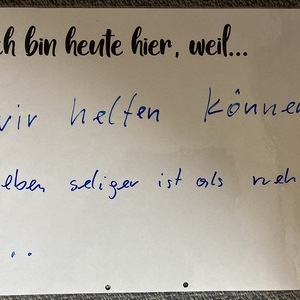 ch bin heute hier, weil...
wir helfen können
eben seliger ist als neh
...